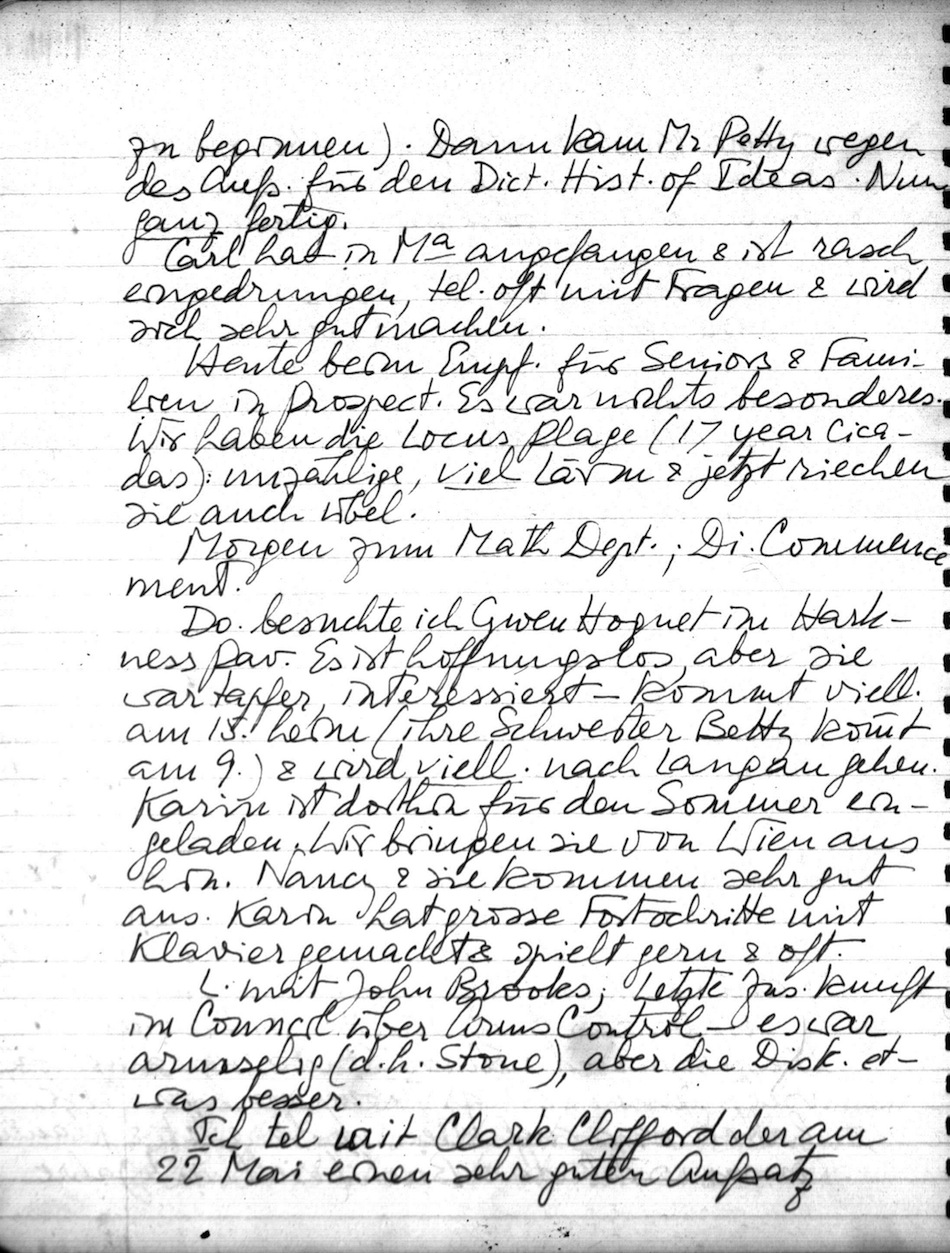 zu beginnen). Dann kam Mr Petty wegen
des Aufs. für den Dict. Hist. of Ideas. Nun
ganz fertig.
Carl hat in Ma angefangen & ist rasch
eingedrungen, tel. oft mit Fragen & wird
sich sehr gut machen.
Heute beim Empf. für Seniors & Fami-
lien in Prospect. Es war nichts besonderes.
Wir haben die Locus Plage (17 year Cica-
das): unzählige, viel Lärm & jetzt riechen
sie auch übel.
Morgen zum Math Dept.; Di. Commence
ment.
Do. besuchte ich Gwen Hognet im Hark-
ness Pav. Es ist hoffnungslos, aber sie
war tapfer, interessiert – kommt viell.
am 15. heim (ihre Schwester Betty kom̅t
am 9.) & wird viell. nach Langau gehen.
Karin ist dorthin für den Sommer ein-
geladen. Wir bringen sie von Wien aus
hin. Nancy & sie kommen sehr gut
aus. Karin hat grosse Fortschritte mit
Klavier gemacht & spielt gern & oft.
L. mit John Brooks; Letzte Zus. kunft
im Council über Arms Control – es war
armselig (d.h. Stone), aber die Disk. et-
was besser.
Ich tel mit Clark Clifford der am
22 Mai einen sehr guten Aufsatz